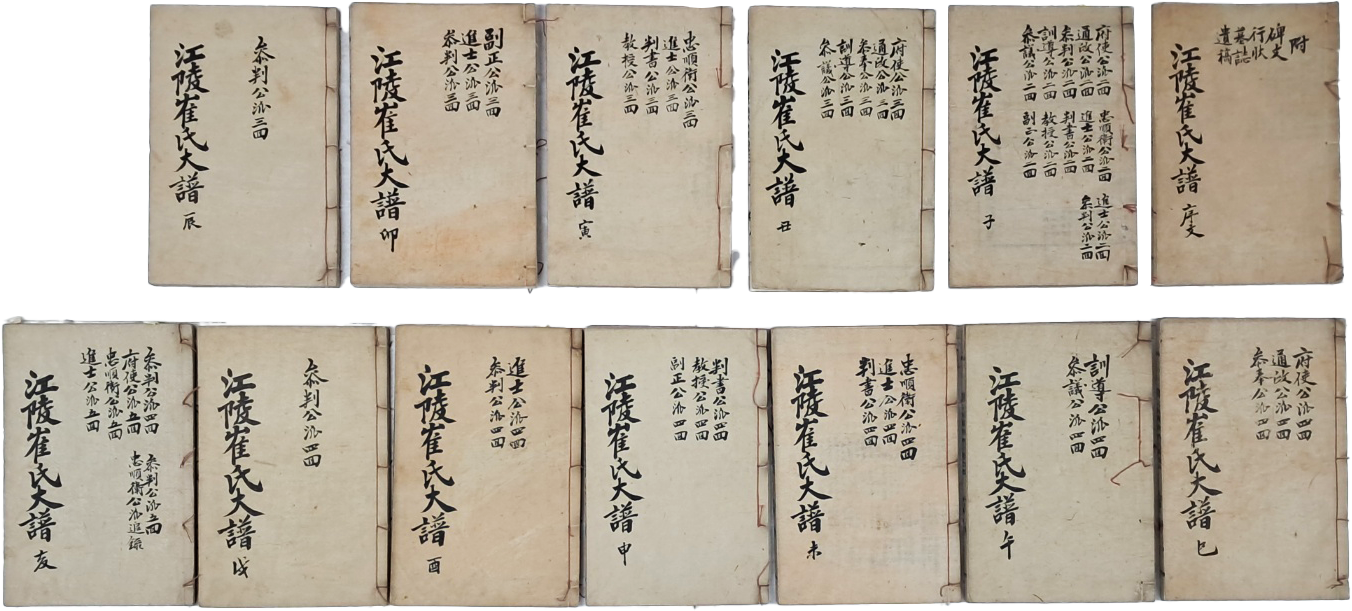 附
碑文
行狀
墓誌
遺稿
江陵崔氏大譜 序文
府使公派二四
通政公派二四
參判公派二四
訓導公派二四
參議公派二四
忠順衛公派二四
進士公派二四
判書公派二四
教授公派二四
副正公派二四
進士公派二四
參判公派二四
江陵崔氏大譜 子
府使公派三四
通政公派三四
參奉公派三四
訓導公派三四
參議公派三四
江陵崔氏大譜 丑
忠順衛公派三四
進士公派三四
判書公派三四
教授公派三四
江陵崔氏大譜 寅
副正公派三四
進士公派三四
參判公派三四
江陵崔氏大譜 卯
參判公派三四
江陵崔氏大譜 辰
府使公派四四
通政公派四四
參奉公派四四
江陵崔氏大譜 巳
訓導公派四四
參議公派四四
江陵崔氏大譜 午
忠順衛公派四四
進士公派四四
判書公派四四
江陵崔氏大譜 未
判書公派四四
教授公派四四
副正公派四四
江陵崔氏大譜 申
進士公派四四
參判公派四四
江陵崔氏大譜 酉
參判公派四四
江陵崔氏大譜 戌
參判公派四四
府使公派五四
忠順衛公派五四
進士公派五四
參判公派五四
忠順衛公派追錄
江陵崔氏大譜 亥